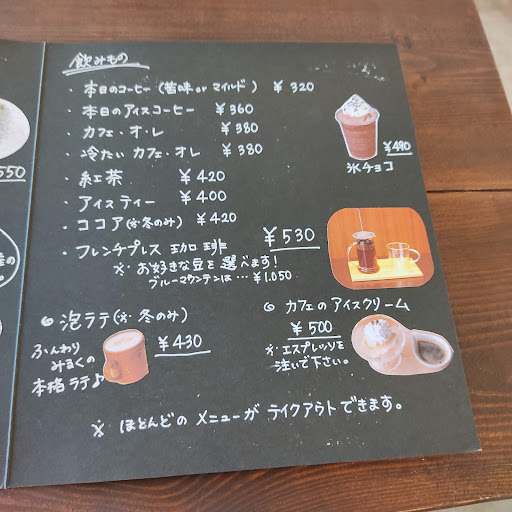 飲みもの
・本日のコーヒー(苦味 or マイルド) ¥320
・本日のアイスコーヒー ¥360
・カフェ・オ・レ ¥380
・冷たいカフェ・オレ ¥380
・紅茶 ¥420
・アイスティー ¥400
・ココア(※冬のみ) ¥420
・フレンチプレス珈琲 ¥530
※お好きな豆を選べます!
ブルーマウンテンは… ¥1.050
¥490
氷チョコ
550
◎泡ラテ(※冬のみ)
¥430
ふんわり
みるくの
本格ラテ♪
◎カフェのアイスクリーム
¥500
※エスプレッソを
注いで下さい。
※ほとんどのメニューがテイクアウトできます。